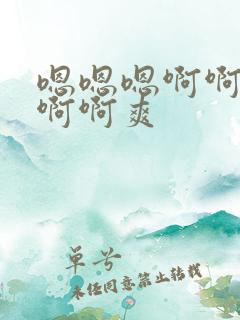 嗯嗯嗯啊啊
啊啊爽
单号
未经同意禁止转载